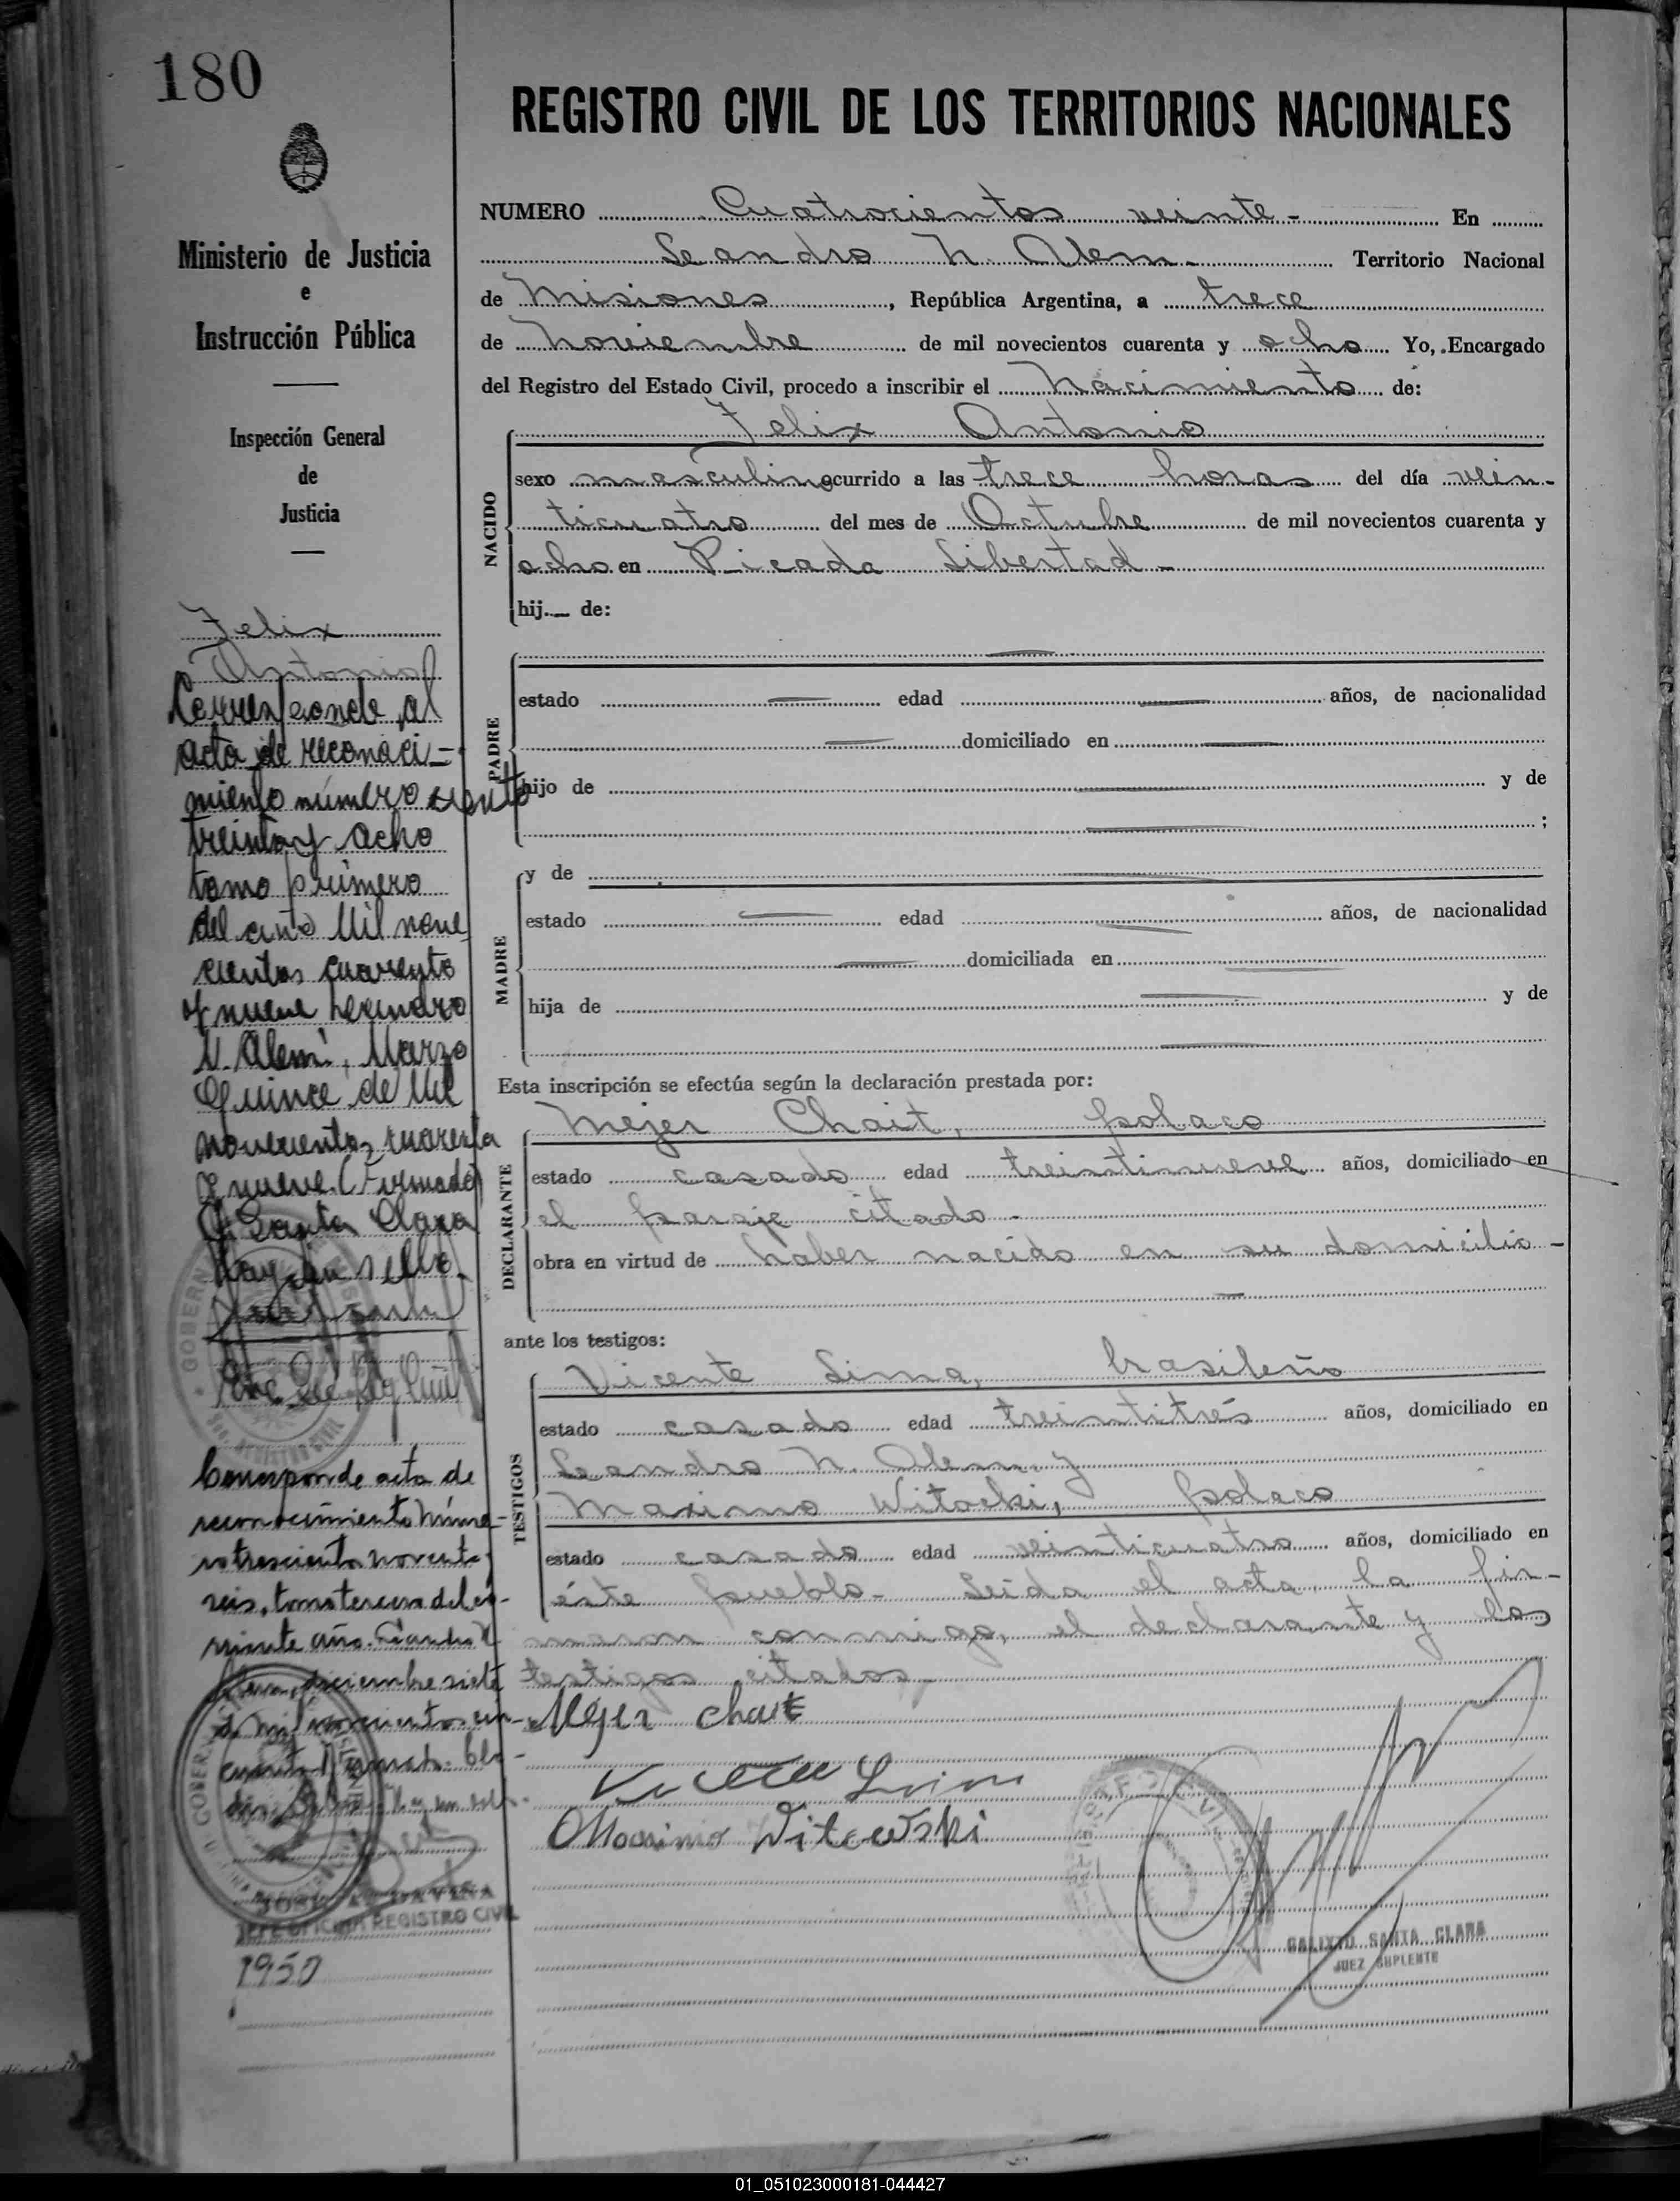 180
REGISTRO CIVIL DE LOS TERRITORIOS NACIONALES
Ministerio de Justicia
e
Instrucción Pública
Inspección General
de
Justicia
NUMERO Cuatrocientos veinte - En
Leandro N. Alem - Territorio Nacional
de Misiones, República Argentina, a trece
de Noviembre de mil novecientos cuarenta y ocho Yo, Encargado
del Registro del Estado Civil, procedo a inscribir el Nacimiento de:
Felix Antonio
NACIDO
sexo masculino ocurrido a las trece horas del día vein-
ticuatro del mes de Octubre de mil novecientos cuarenta y
ocho en Picada Libertad -
hij— de:
PADRE
estado — edad — años, de nacionalidad
— domiciliado en —
hijo de — y de
— ;
MADRE
y de —
estado — edad — años, de nacionalidad
— domiciliada en —
hija de — y de
Esta inscripción se efectúa según la declaración prestada por:
DECLARANTE
Mejer Chait, polaco
estado casado edad treintinueve años, domiciliado en
el paraje citado -
obra en virtud de haber nacido en su domicilio -
ante los testigos:
TESTIGOS
Vicente Lima, brasileño
estado casado edad treintitrés años, domiciliado en
Leandro N. Alem y
Maximo Witoski, polaco
estado casado edad veinticuatro años, domiciliado en
éste pueblo - Leida el acta, la fir-
maron conmigo, el declarante y los
testigos citados -
Mejer Chait
Vicente Lima
Maximo Witowski
CALIXTO SANTA CLARA
JUEZ SUPLENTE
Felix
Antonio
Corresponde al
acta de reconoci-
miento número ciento
treinta y ocho
tomo primero
del año Mil nove
cientos cuarenta
y nueve Leandro
N. Alem, Marzo
Quince de Mil
novecientos cuarenta
y nueve. (Firmado)
C. Santa Clara
Hay un sello.
Corresponde acta de
reconocimiento núme-
ro trescientos noventa
seis, tomo tercero del co-
rriente año. Leandro N.
Alem, diciembre siete
de mil novecientos cin-
cuenta
JEFE OFICINA REGISTRO CIVIL
1950
01_051023000181-044427